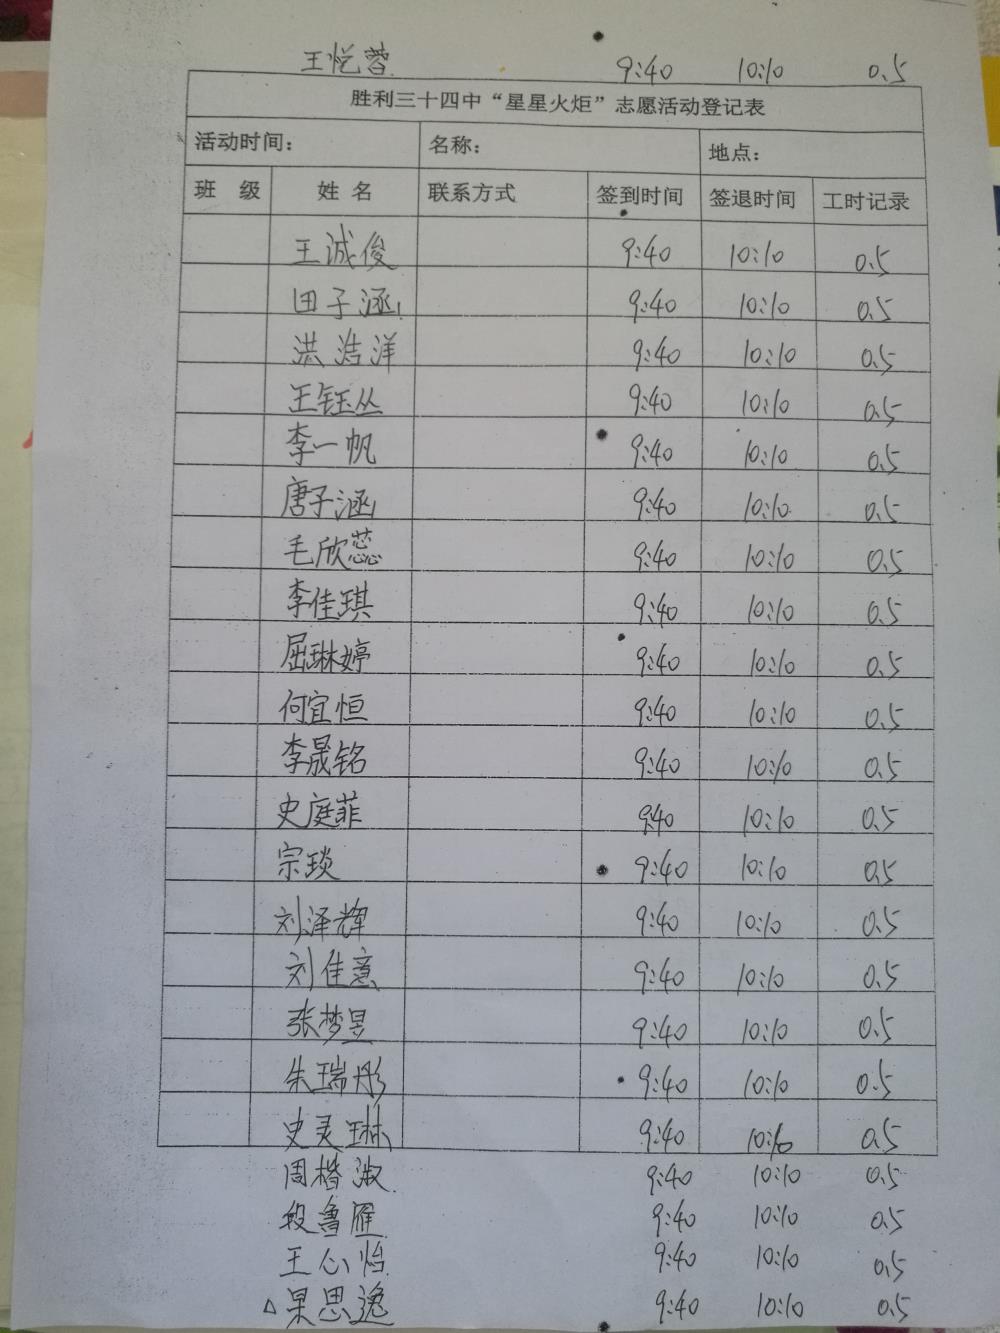 王悦蓉 9:40 10:10 0.5
胜利三十四中“星星火炬”志愿活动登记表
活动时间： 名称： 地点：
班 级 姓 名 联系方式 签到时间 签退时间 工时记录
王诚俊 9:40 10:10 0.5
田子涵 9:40 10:10 0.5
洪浩洋 9:40 10:10 0.5
王钰丛 9:40 10:10 0.5
李一帆 9:40 10:10 0.5
唐子涵 9:40 10:10 0.5
毛欣蕊 9:40 10:10 0.5
李佳琪 9:40 10:10 0.5
屈琳婷 9:40 10:10 0.5
何宜恒 9:40 10:10 0.5
李晟铭 9:40 10:10 0.5
史庭菲 9:40 10:10 0.5
宗琰 9:40 10:10 0.5
刘泽辉 9:40 10:10 0.5
刘佳意 9:40 10:10 0.5
张梦昱 9:40 10:10 0.5
朱瑞彤 9:40 10:10 0.5
史灵琳 9:40 10:10 0.5
周楷淑 9:40 10:10 0.5
段鲁雁 9:40 10:10 0.5
王心怡 9:40 10:10 0.5
△果思逸 9:40 10:10 0.5